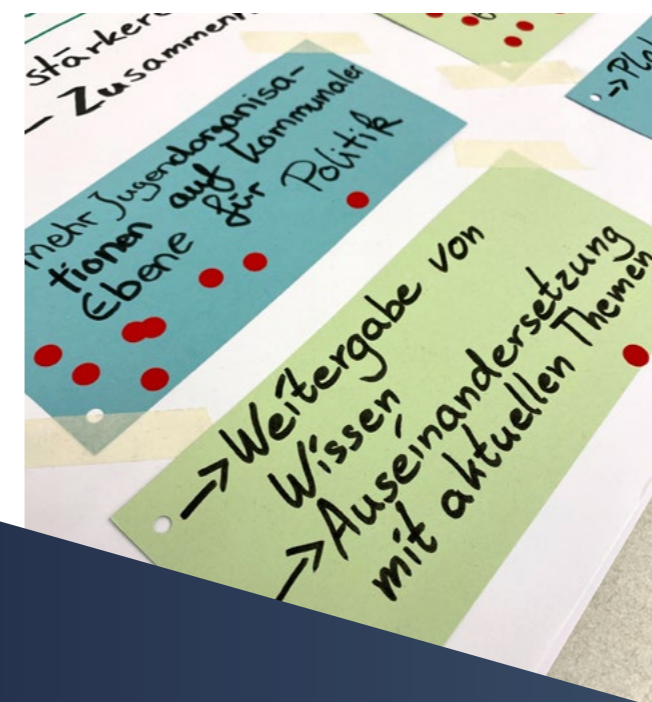 stärkere
– Zusammen
mehr Jugendorganisa-
tionen auf kommunaler
Ebene für Politik
→Weitergabe von
Wissen
→Auseinandersetzung
mit aktuellen Themen